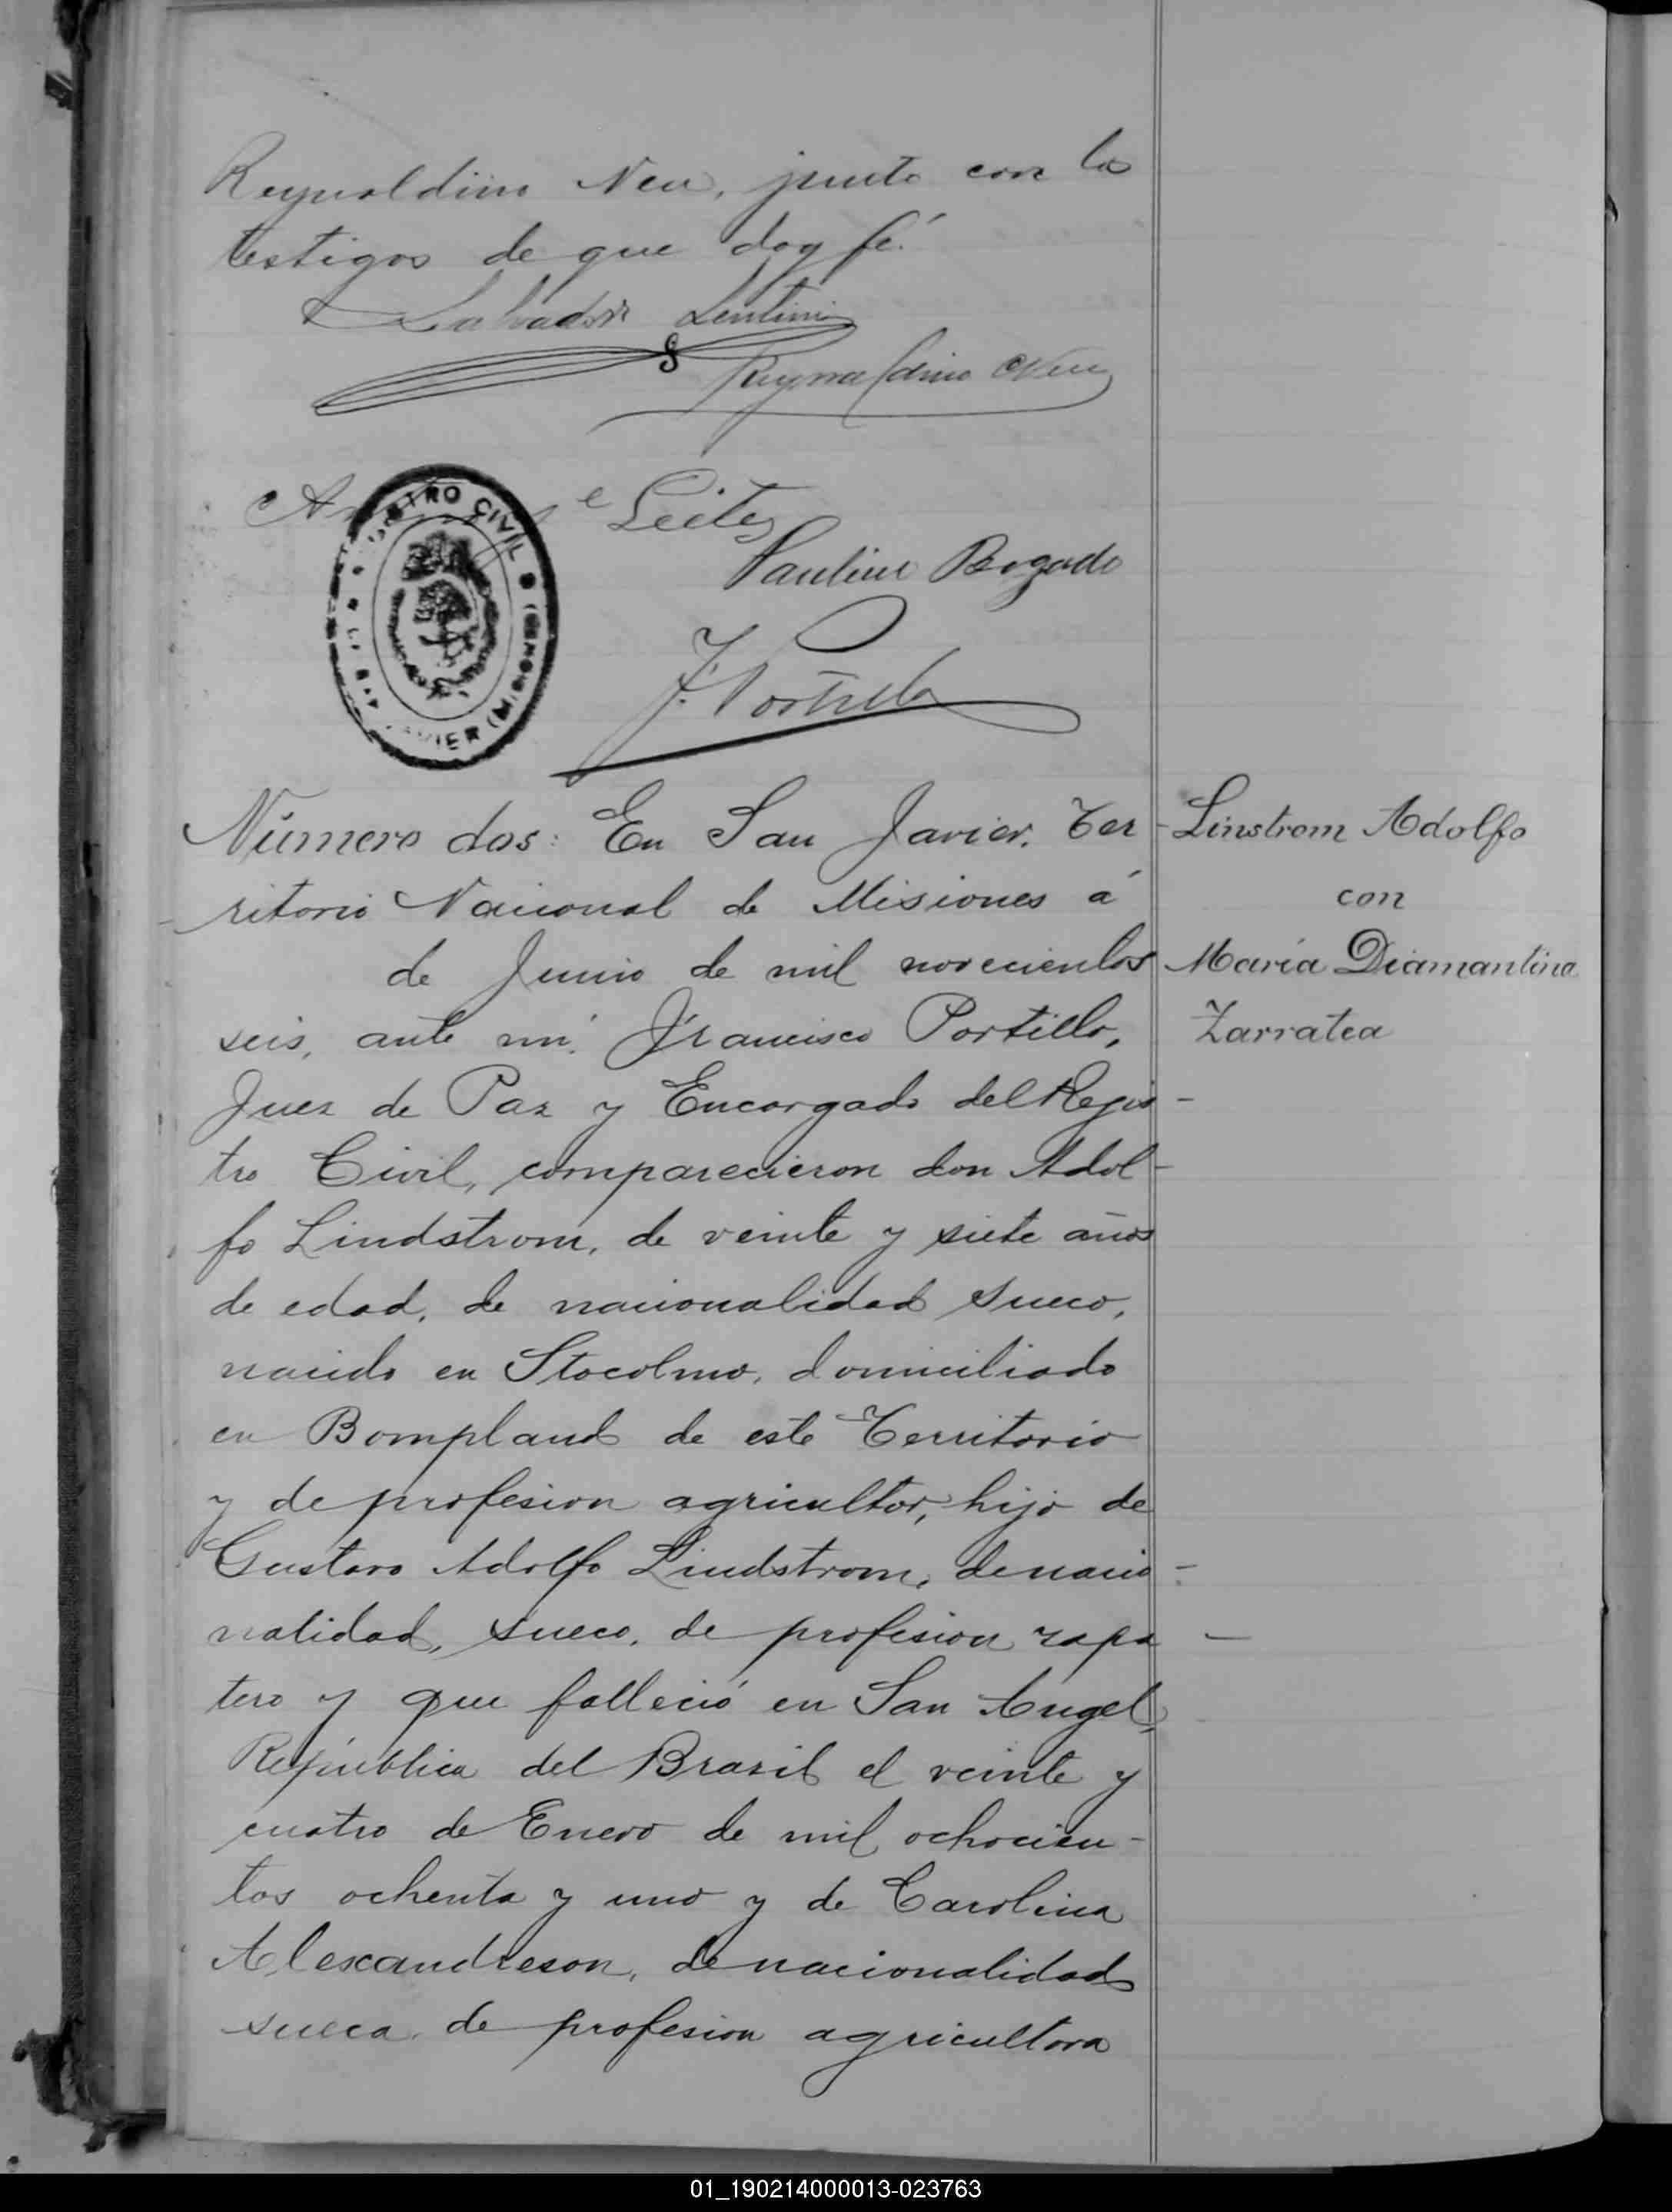 Reynaldino Neu, junto con los
testigos de que doy fé.
Salvador Lentini
Reynaldino Neu
Leites
REGISTRO CIVIL
JAVIER (MISIONES)
Paulino Bogado
F. Portillo
Número dos: En San Javier, Ter-
ritorio Nacional de Misiones á
de Junio de mil novecientos
seis, ante mi, Francisco Portillo,
Juez de Paz y Encargado del Regis-
tro Civil, comparecieron don Adol-
fo Lindstrom, de veinte y siete años
de edad, de nacionalidad sueco,
nacido en Stocolmo, domiciliado
en Bompland de este Territorio
y de profesion agricultor, hijo de
Gustavo Adolfo Lindstrom, de nacio-
nalidad, sueco, de profesion zapa-
tero y que falleció en San Angel,
República del Brazil el veinte y
cuatro de Enero de mil ochocien-
tos ochenta y uno y de Carolina
Alexandreson, de nacionalidad
sueca, de profesion agricultora
Linstrom Adolfo
con
María Diamantina
Zarratea
01_190214000013-023763